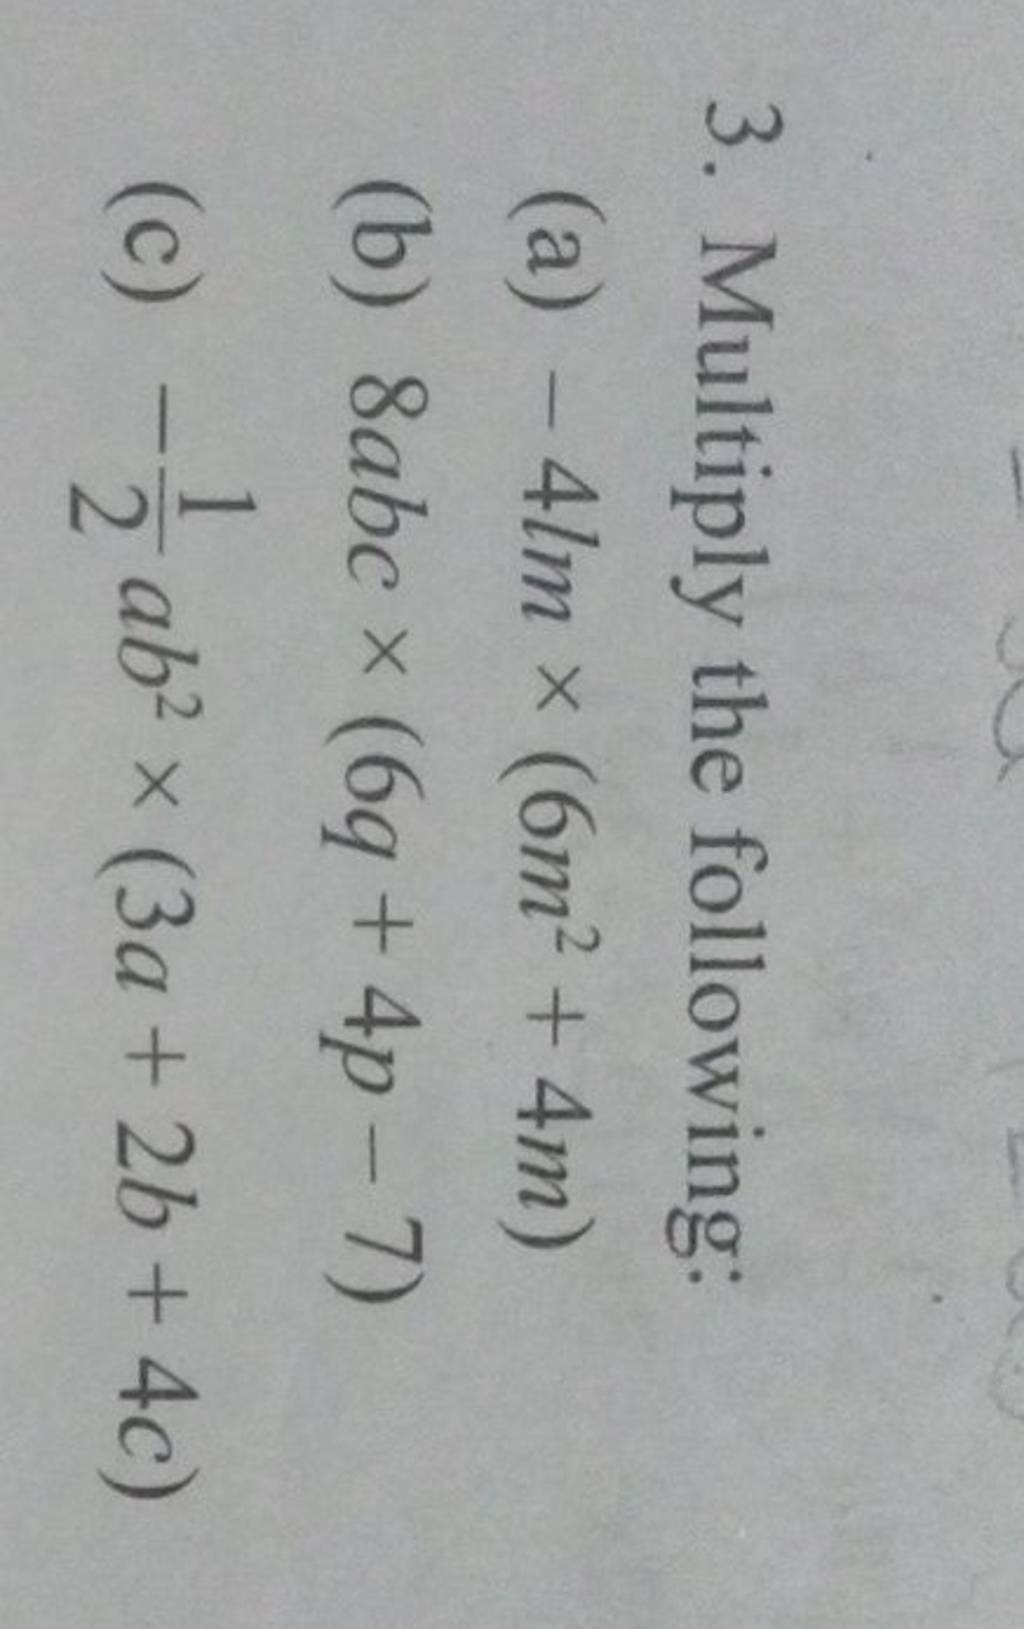 3. Multiply the following:
(a) – 4lm × (6m² + 4m)
(b) 8abc × (6q + 4p – 7)
(c) –1/2 ab² × (3a + 2b + 4c)